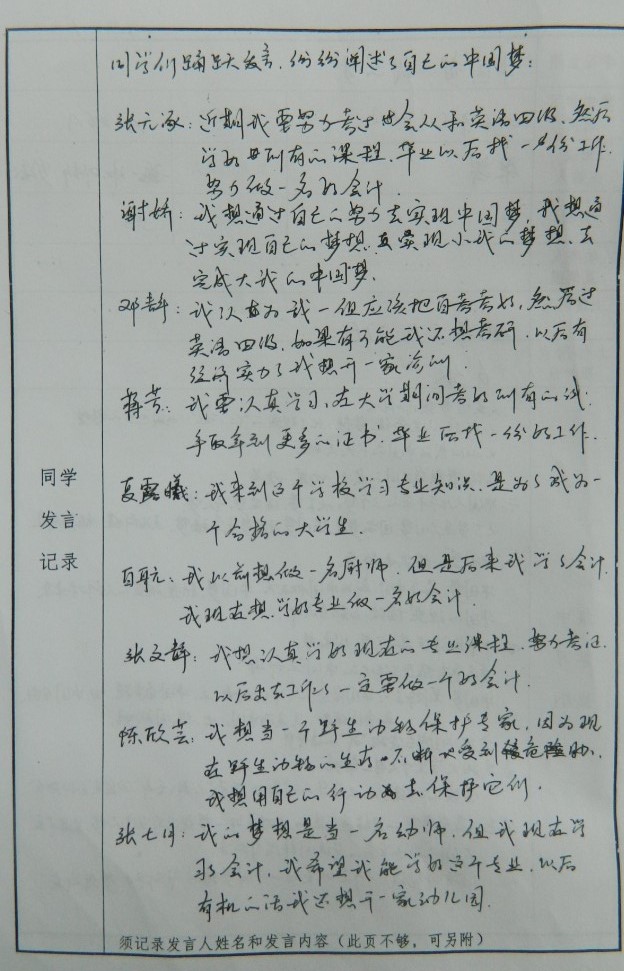 同学们踊跃发言，份份阐述了自己的中国梦：
张元涿：近期我要努力考过会从和英语四级，然后
学好所有的课程，毕业以后找一份工作，
努力做一名好会计．
谢娇：我想通过自己的努力去实现中国梦，我想通
过实现自己的梦想，去实现小我的梦想，去
完成大我的中国梦．
邓静：我认为我一但应该把自考考好，然后过
英语四级，如果有可能我还想考研，以后有
经济实力了我想开一家
蒋芳：我要认真学习，在大学期间考好所有的试，
争取拿到更多的证书．毕业后找一份好工作．
夏露曦：我来到这个学校学习专业知识，是为了成为一
个合格的大学生．
白耘：我以前想做一名厨师，但是后来我学了会计，
我现在想学好专业做一名好会计．
张文静：我想认真学好现在的专业课程，努力考证，
以后出去工作了一定要做一个好会计．
陈欣芸：我想当一个野生动物保护专家，因为现
在野生动物的生存不断地受到危险，
我想用自己的行动去保护它们．
张七月：我的梦想是当一名幼师，但我现在学
习了会计，我希望我能学好这个专业，以后
有机的话我还想开一家幼儿园．
同学
发言
记录
须记录发言人姓名和发言内容（此页不够，可另附）